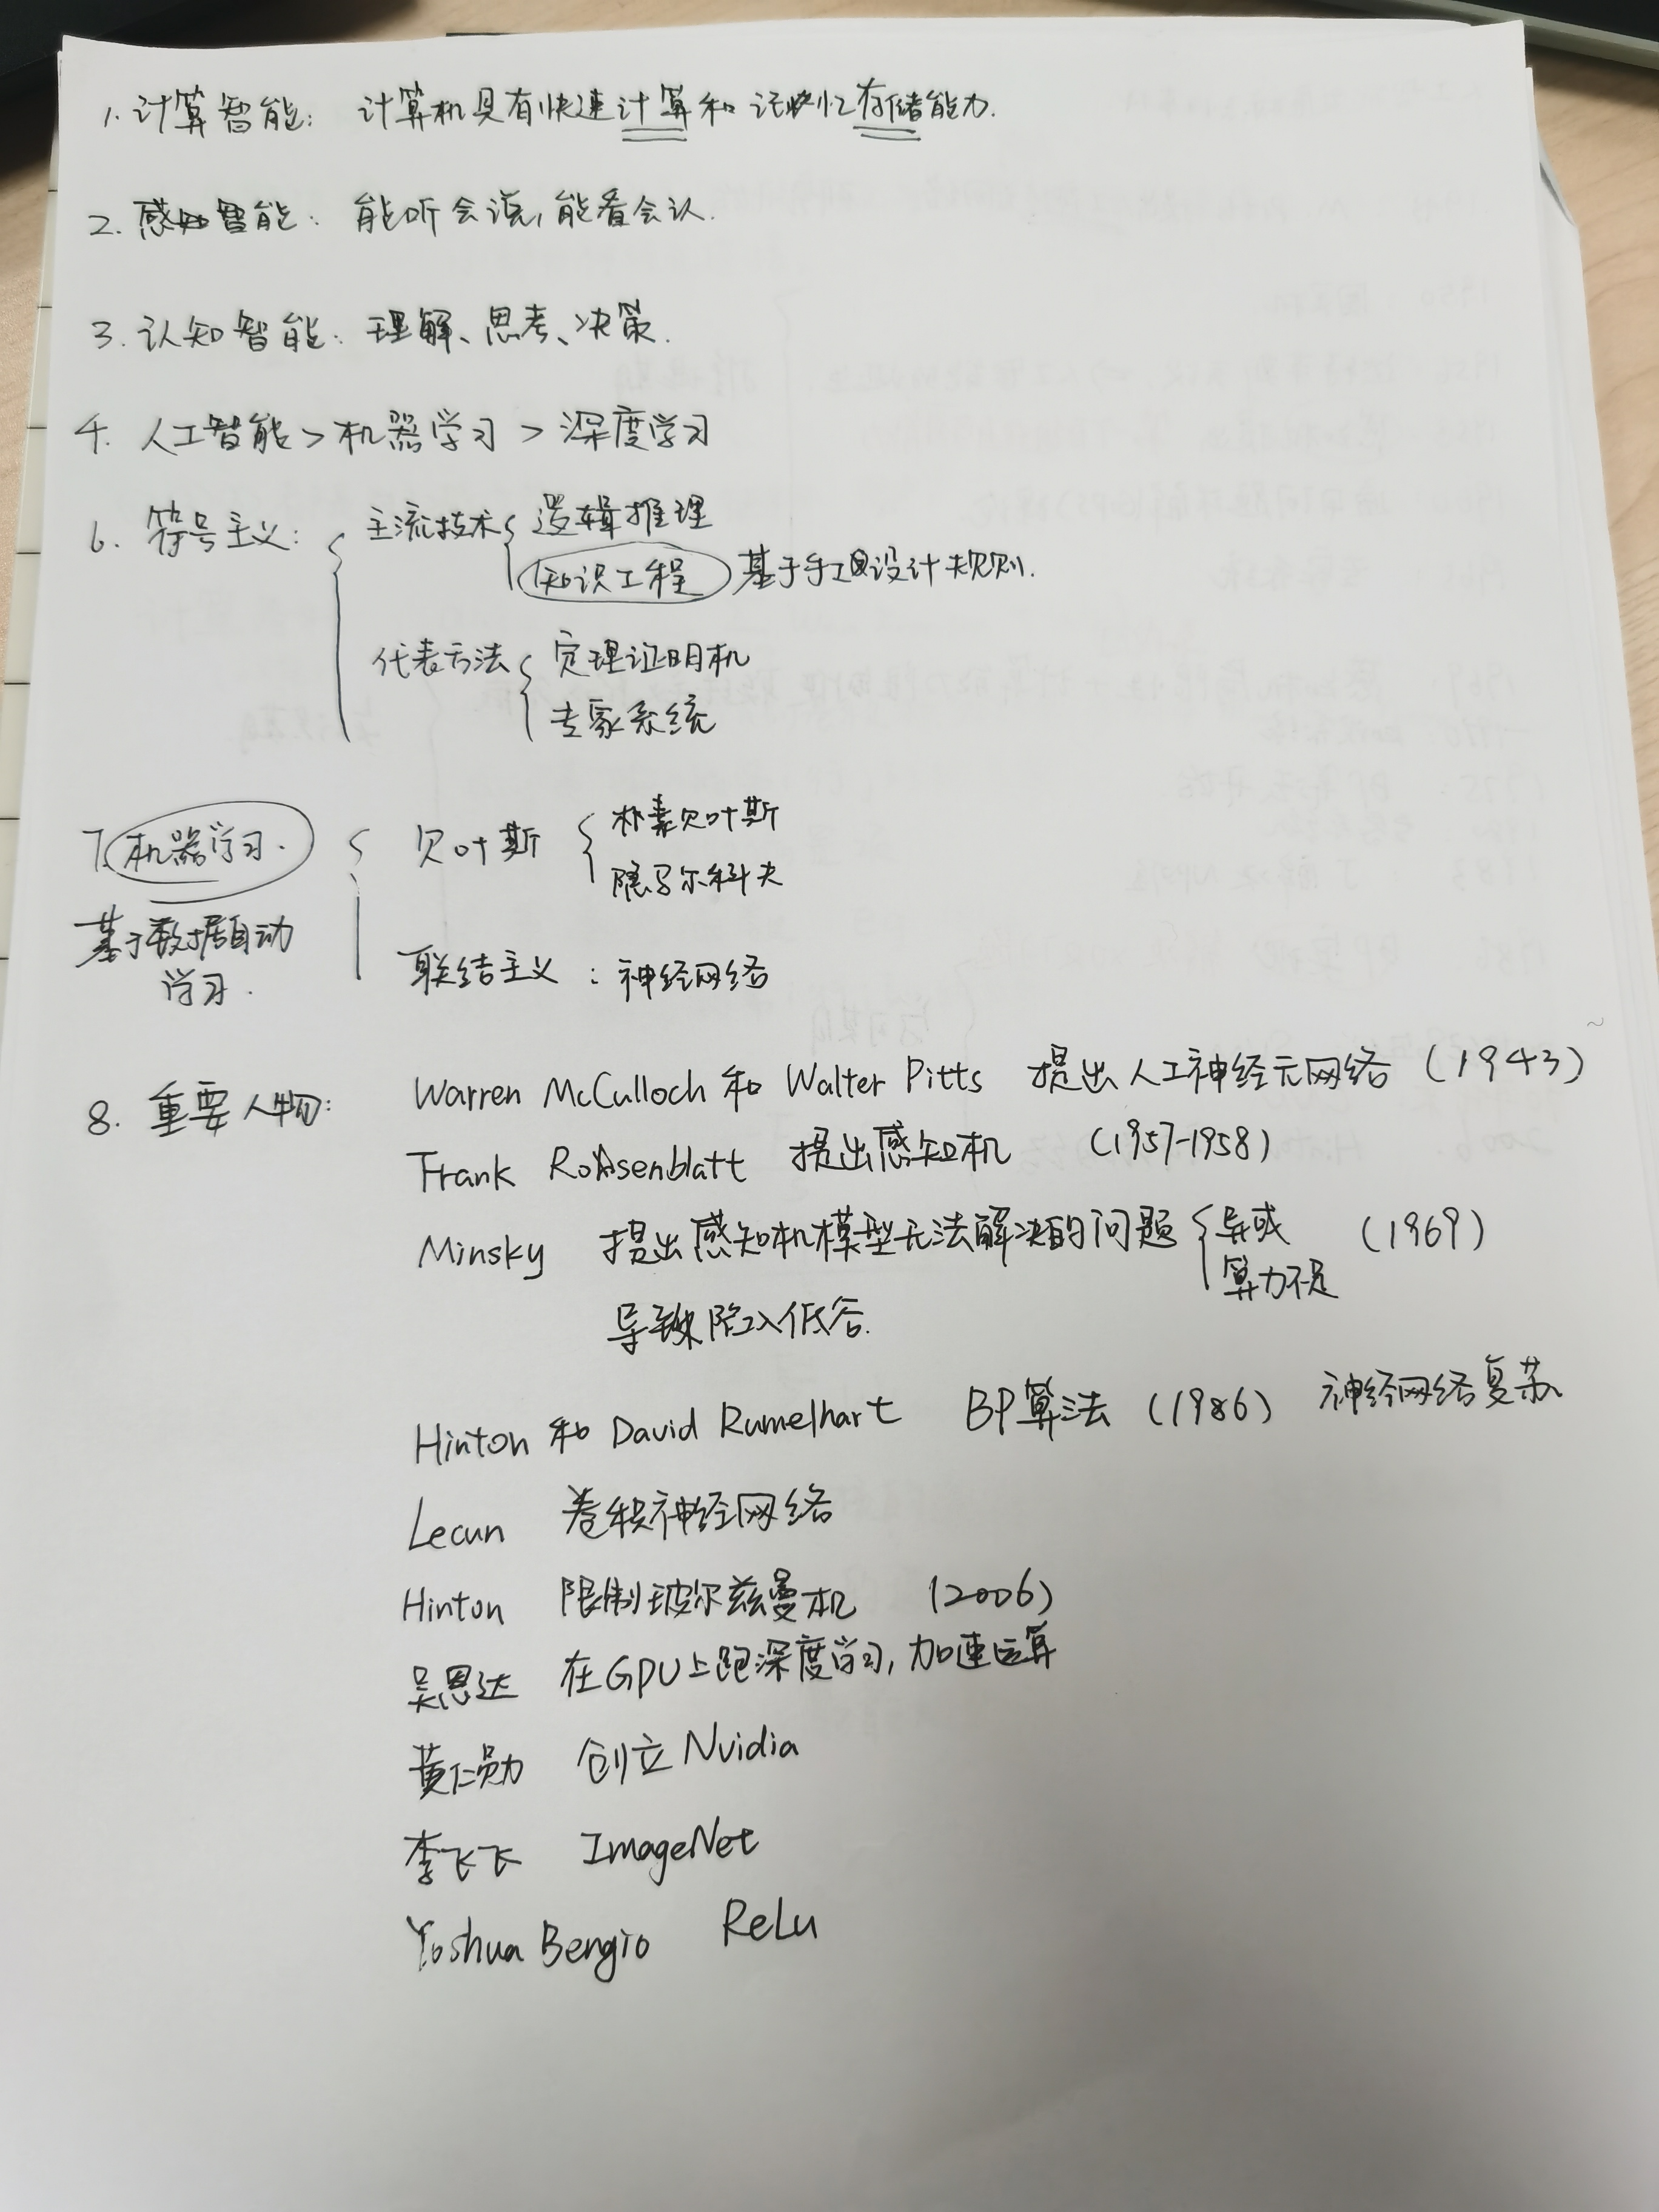 1. 计算智能： 计算机具有快速计算和记忆存储能力.
2. 感知智能： 能听会说, 能看会认.
3. 认知智能： 理解、思考、决策.
4. 人工智能 > 机器学习 > 深度学习
6. 符号主义： 主流技术 逻辑推理
知识工程 基于手工设计规则.
代表方法 定理证明机
专家系统
7. 机器学习. 贝叶斯 朴素贝叶斯
隐马尔科夫
基于数据自动
学习. 联结主义： 神经网络
8. 重要人物： Warren McCulloch 和 Walter Pitts 提出人工神经元网络 (1943)
Frank Rosenblatt 提出感知机 (1957-1958)
Minsky 提出感知机模型无法解决的问题 异或 (1969)
算力不足
导致陷入低谷.
Hinton 和 David Rumelhart BP算法 (1986) 神经网络复苏
Lecun 卷积神经网络
Hinton 限制玻尔兹曼机 (2006)
吴恩达 在GPU上跑深度学习, 加速运算
黄仁勋 创立 Nvidia
李飞飞 ImageNet
Yoshua Bengio ReLu